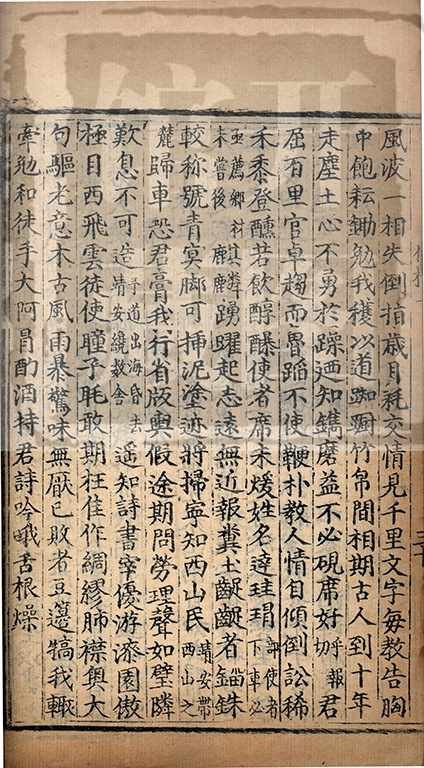 風波一相失倒指歲月耗交情見千里文字每教告胸
中飽耘鋤勉我穫以道踟蹰竹帛間相期古人到十年
走塵土心不勇於躁迺知鐫磨益不必硯席好呼報切君
屈百里官卓趨而冒蹈不使鞭朴教人情自傾倒訟稀
禾黍登醺若飲醇醪使者席未煖姓名達珪瑁部使者下車必
亟薦鄉材未嘗後騏驎麤踴躍起志遠無近報糞土齷齪者錙銖
較称號青冥脚可揷泥塗迹將掃寧知西山民靖安帶西山之
麓歸車恐君膏我行省版輿假途期問勞理聲如璧隣
歎息不可造子道出海昏去靖安繞數舍遥知詩書宰優游漆園傲
極目西飛雲徒使瞳子眊敢期枉佳作綢繆肺襟與大
句驅老意木古風雨暴驚味無厭已敗者豆籩犒我輙
牽勉和徒手大阿冒酌酒持君詩吟哦舌根燥